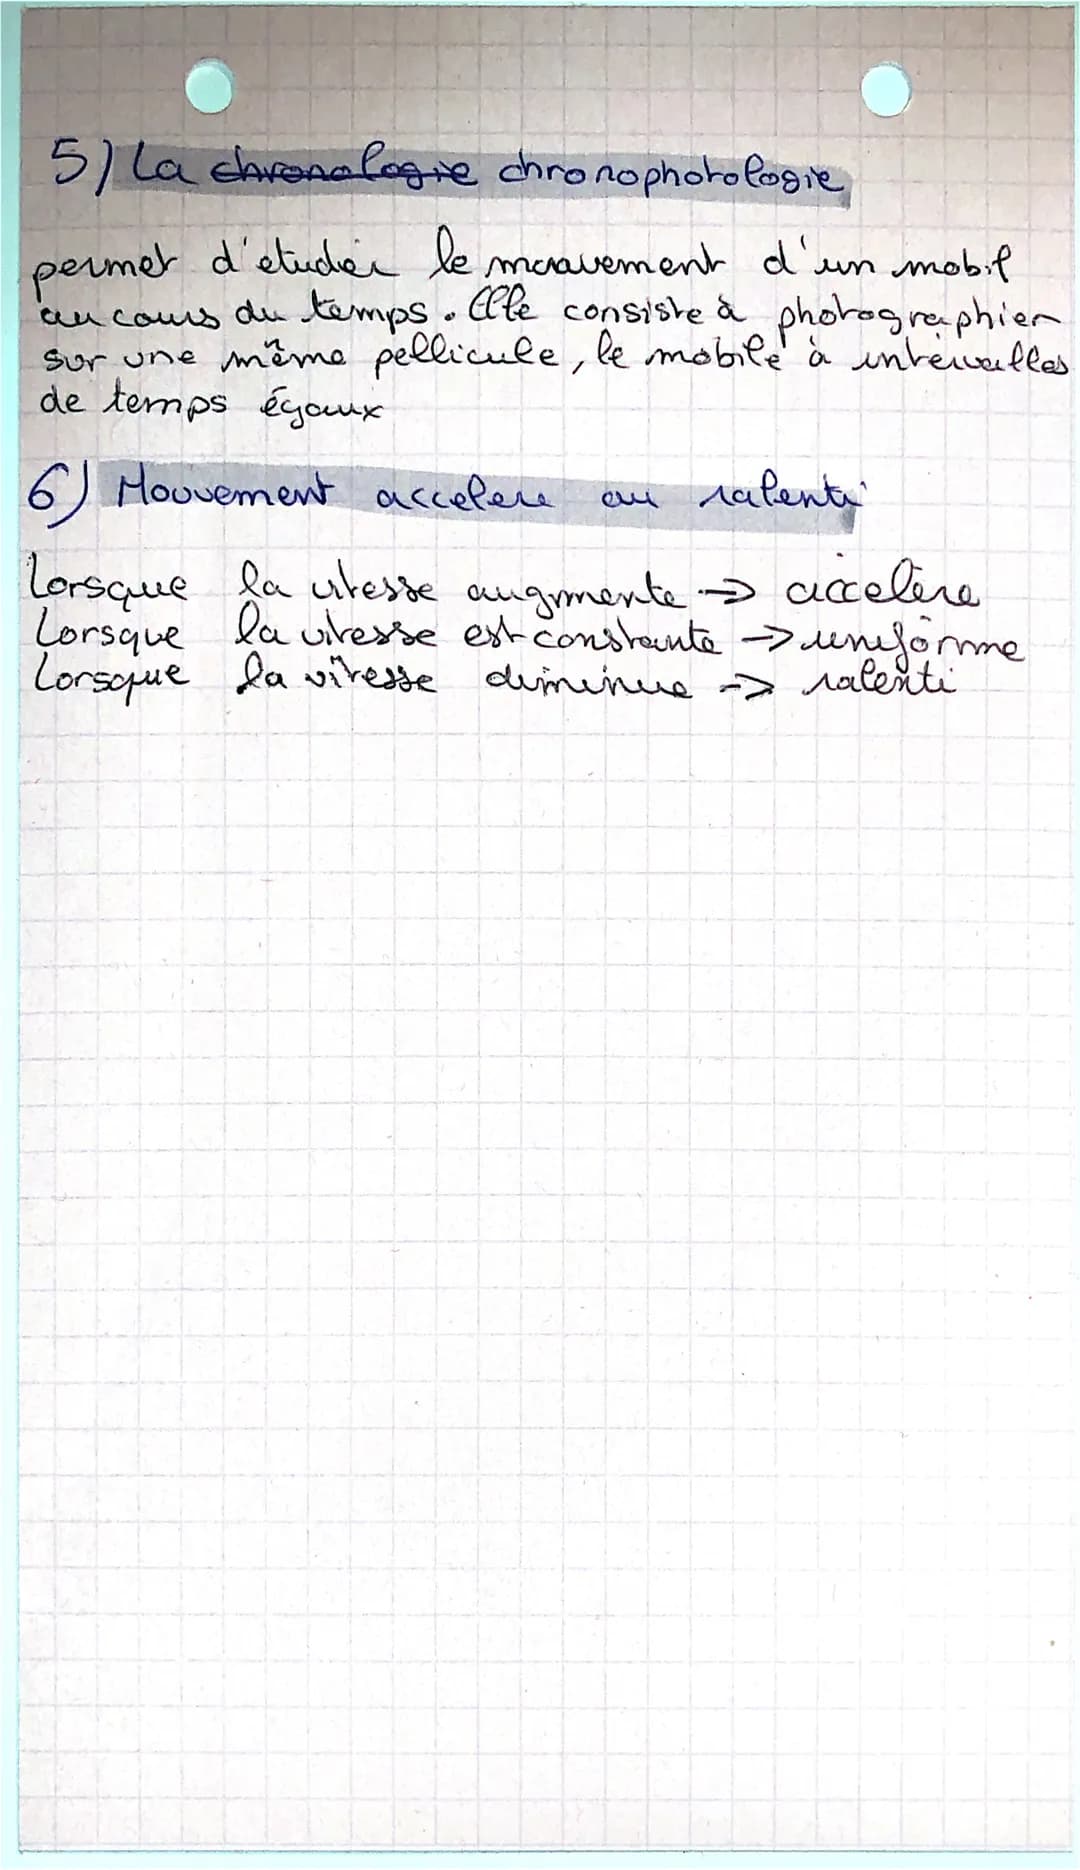 5) La chronologie chronophotologie
permet d'étudier le mouvement d'un mobil
au cours du temps. Elle consiste à photographier
sur une même pellicule, le mobile à intervalles
de temps égaux
6) Mouvement accelere ou ralenti
Lorsque la vitesse augmente -> accelère
Lorsque la vitesse est constante -> uniforme
Lorsque la vitesse diminue -> ralenti